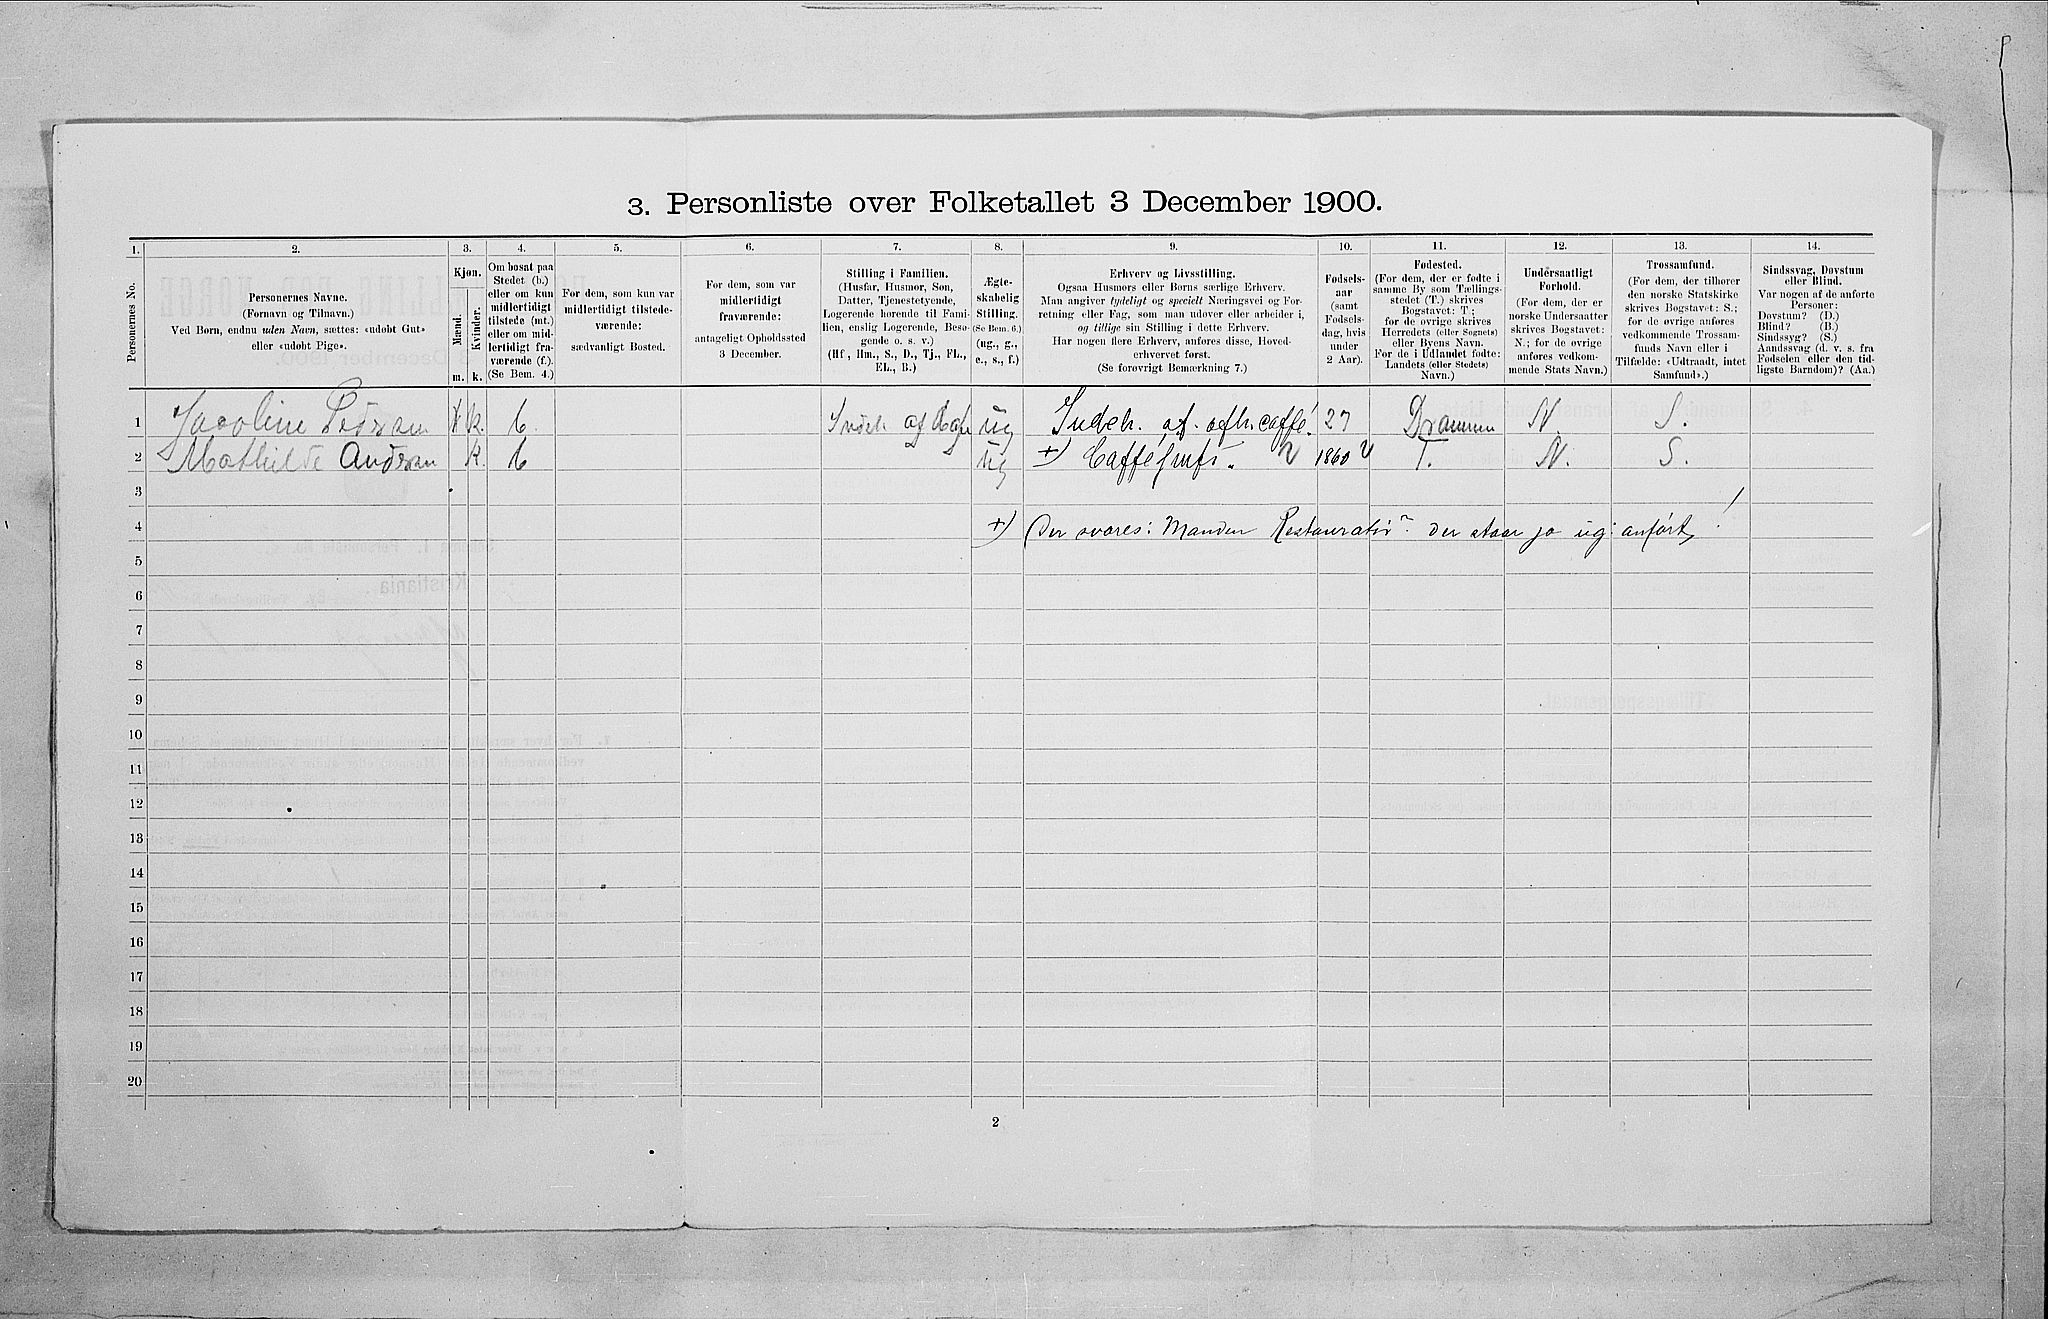 3. Personliste over Folketallet 3 December 1900.
1. 2. 3. 4. 5. 6. 7. 8. 9. 10. 11. 12. 13. 14.
Personernes No.
Personernes Navne.
(Fornavn og Tilnavn.)
Ved Børn, endnu uden Navn, sættes: «udøbt Gut»
eller «udøbt Pige».
Kjøn.
Mænd.
Kvinder.
m. k.
Om bosat paa
Stedet (b.)
eller om kun
midlertidigt
tilstede (mt.)
eller om mid-
lertidigt fra-
værende (f.).
(Se Bem. 4.)
For dem, som kun var
midlertidigt tilstede-
værende:
sædvanligt Bosted.
For dem, som var
midlertidigt
fraværende:
antageligt Opholdssted
3 December.
Stilling i Familien.
(Husfar, Husmor, Søn,
Datter, Tjenestetyende,
Logerende hørende til Fami-
lien, enslig Logerende, Besø-
gende o. s. v.)
(Hf, Hm., S., D., Tj., FL.,
EL., B.)
Ægte-
skabelig
Stilling.
(Se Bem. 6.)
(ug., g.,
e., s., f.)
Erhverv og Livsstilling.
Ogsaa Husmors eller Børns særlige Erhverv.
Man angiver tydeligt og specielt Næringsvei og For-
retning eller Fag, som man udøver eller arbeider i,
og tillige sin Stilling i dette Erhverv.
Har nogen flere Erhverv, anføres disse, Hoved-
erhvervet først.
(Se forøvrigt Bemærkning 7.)
Fødsels-
aar
(samt
Fødsels-
dag, hvis
under
2 Aar).
Fødested.
(For dem, der er fødte i
samme By som Tællings-
stedet (T.) skrives
Bogstavet: T.;
for de øvrige skrives
Herredets (eller Sognets)
eller Byens Navn.
For de i Udlandet fødte:
Landets (eller Stedets)
Navn.)
Undersaatligt
Forhold.
(For dem, der er
norske Undersaatter
skrives Bogstavet:
N.; for de øvrige
anføres vedkom-
mende Stats Navn.)
Trossamfund.
(For dem, der tilhører
den norske Statskirke
skrives Bogstavet: S.;
for de øvrige anføres
vedkommende Trossam-
funds Navn eller i
Tilfælde: «Udtraadt, intet
Samfund».)
Sindssvag, Døvstum
eller Blind.
Var nogen af de anførte
Personer:
Døvstum? (D.)
Blind? (B.)
Sindssyg? (S.)
Aandssvag (d. v. s. fra
Fødselen eller den tid-
ligste Barndom)? (Aa.)
1 Jacoline Pedersen k. b. ug Indeh. af afh. caffé. 27 Drammen N. S.
2 Mathilde Andersen k b ug +) Caffé 1860 T. N. S.
3
4 +) Der svares: Manden Restauratør? der staar jo ug: anført!
5
6
7
8
9
10
11
12
13
14
15
16
17
18
19
20
2